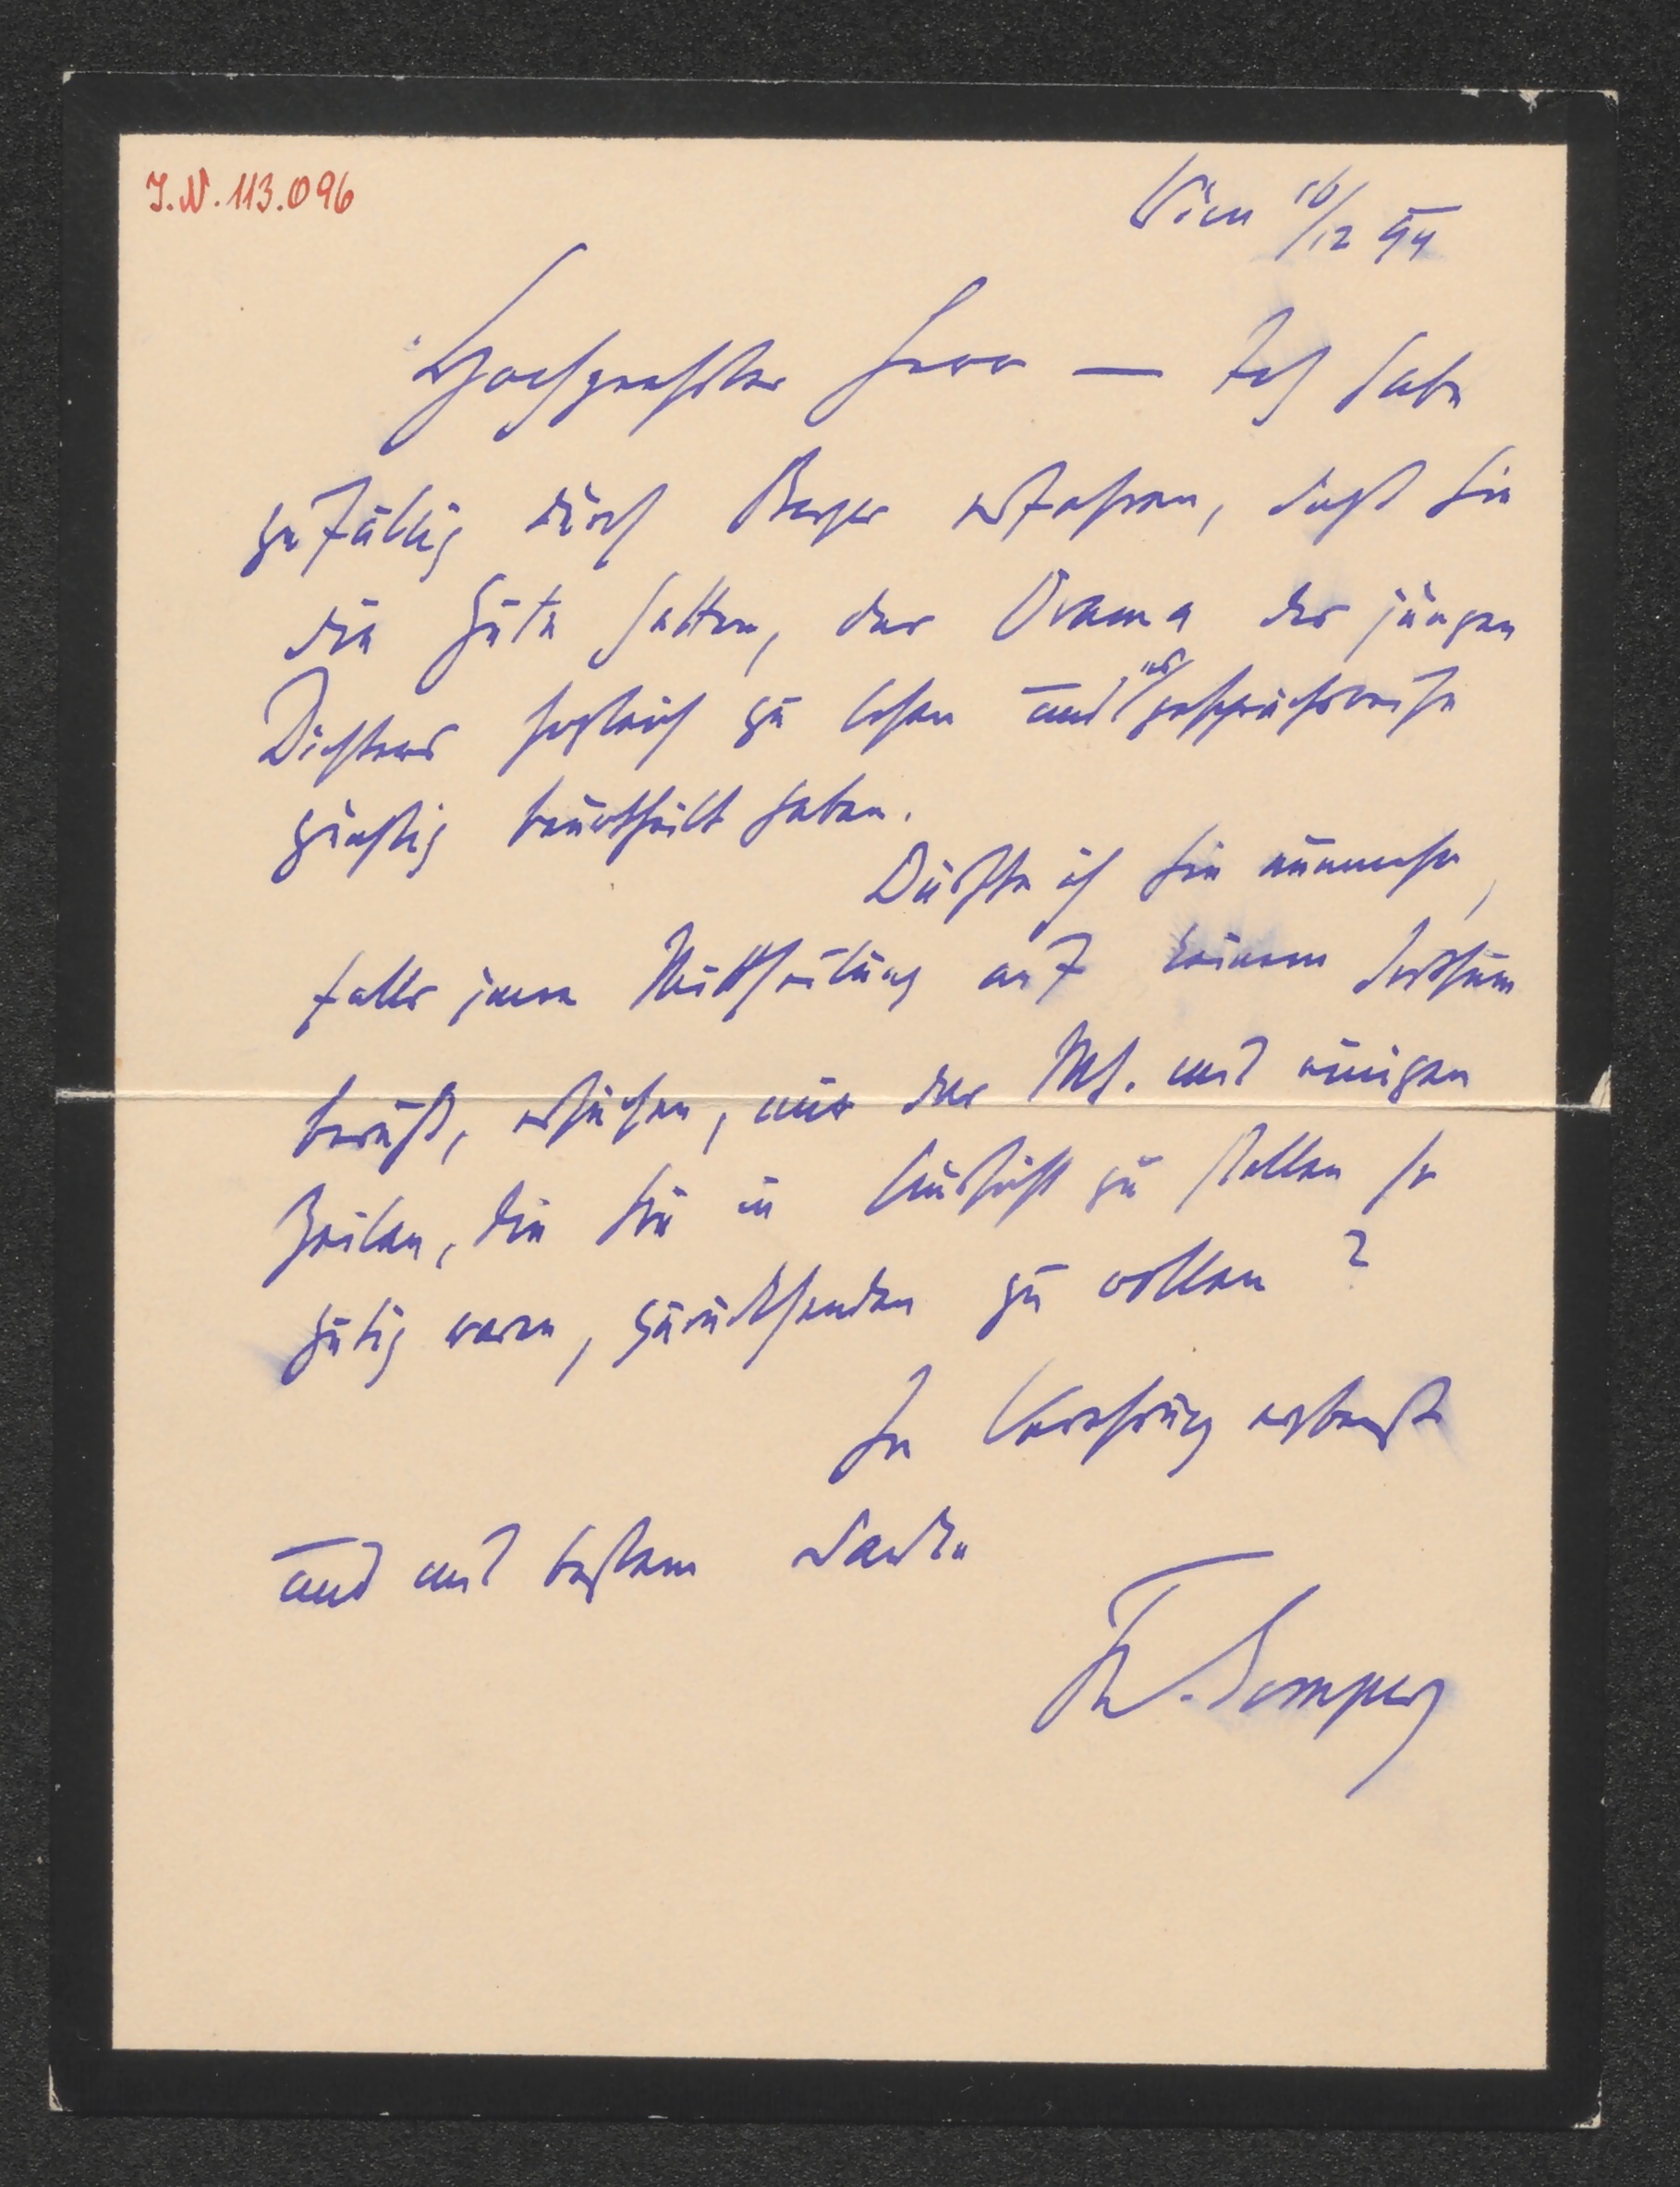 J. N. 113.096
Wien 16/12 94
Hochgeehrter Herr — Ich habe
zufällig durch Berger erfahren, daß Sie
die Güte hatten, das Drama des jungen
Dichters sogleich zu lesen und es gesprächsweise
günstig beurtheilt haben.
Dürfte ich Sie nunmehr,
falls jene Mittheilung auf keinem Irrthum
beruht, ersuchen, mir das Ms. mit einigen
Zeilen, die Sie in Aussicht zu stellen so
gütig waren, zurücksenden zu wollen?
In Verehrung ergebenst
und mit bestem Danke
Th. Gomperz